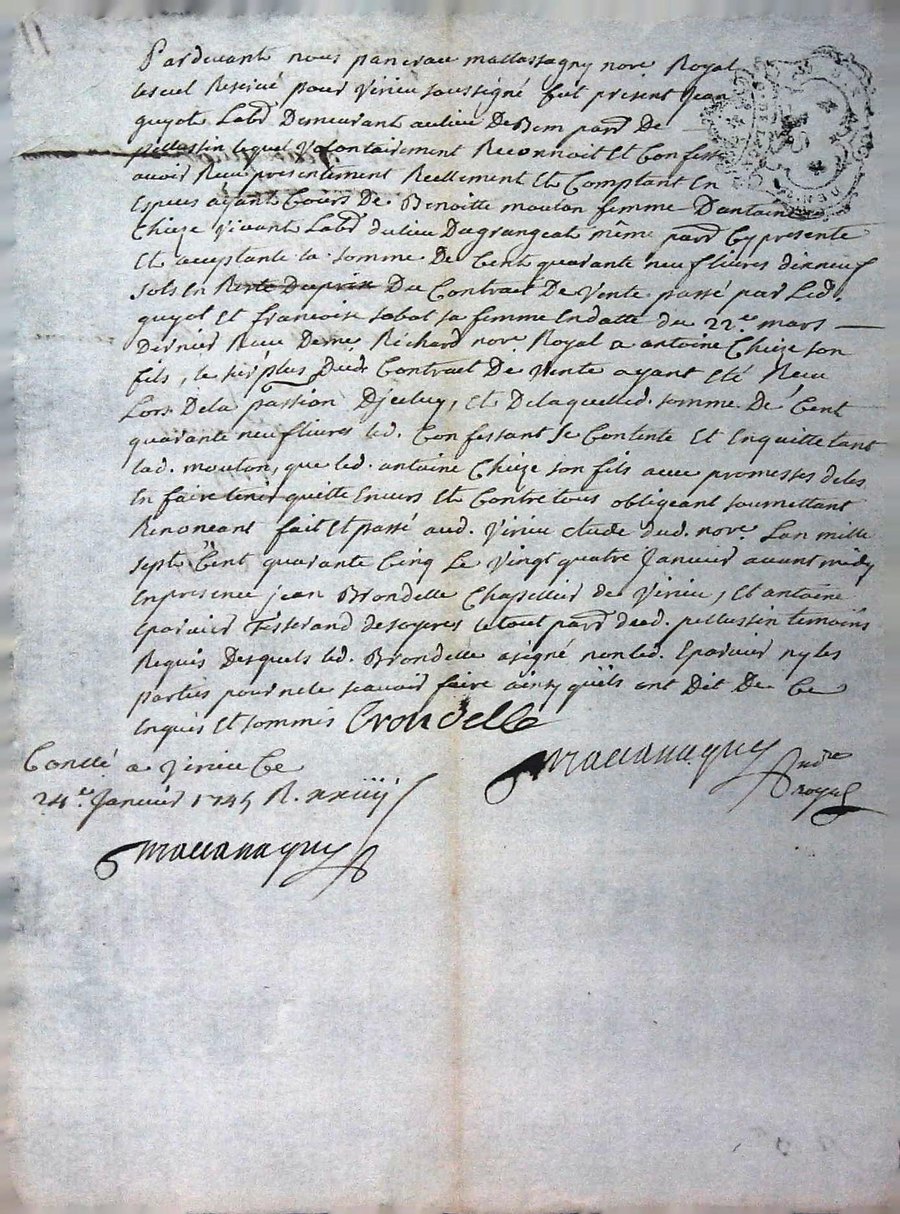 Pardevant nous pancrau mattassagny nore. Royal
les cel Reservé pour Virieu soussigné fut present Jean
guyot Labr Demeurant au lieu De Bem parr De
pellassin lequel Volontairement Reconnoit Et Confesse
avoir Reçu presentement Reellement Et Comptant En
Especes ayant Cours De Benoitte mouton femme D'antoine
Chieze Vivant Labr du lieu Du grangeat même parr Cy presente
Et acceptante la somme De Cent quarante neuf livres dixneuf
sols En Reste Du prix Du Contract De Vente passé par Led.
guyot Et francoise sabot sa femme En datte du 22.e mars
Dernier Reçu De me. Richard nore. Royal a antoine Chieze son
fils, le surplus Dud. Contract De Vente ayant Eté Reçu
Lors De la passion D'jceluy, Et De laquelle d. somme De Cent
quarante neuf livres led. Confessant se Contente Et Enquitte tant
lad. mouton, que led. antoine Chieze son fils avec promesses de les
En faire tenir quitte Envers Et Contre tous obligeant soumettant
Renonçant fait Et passé aud. Virieu Etude dud. nore. Lan mille
sept Cent quarante Cinq Le Vingt quatre Janvier avant midy
En presence jean Brondelle Chapellier de Virieu, Et antoine
Eparvier Tisserand de soyeres le tout parr dud. pellussin temoins
Requis Desquels led. Brondelle a signé non led. Eparvier ny les
parties pour ne le scavoir faire ainsy qu'ils ont Dit De Ce
Enquis Et sommés Brondelle
Conllé a Virieu Ce
24.e Janvier 1745 R. xxiiij s